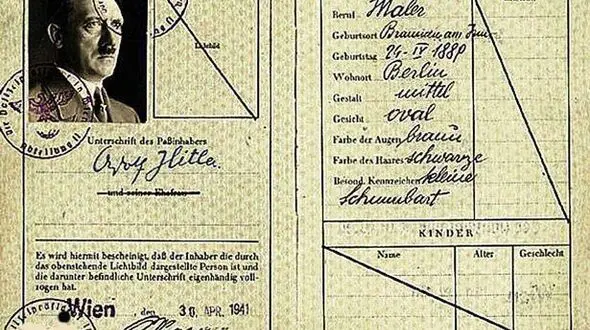 Lichtbild
Unterschrift des Paßinhabers
Adolf Hitler
und seiner Ehefrau
Es wird hiermit bescheinigt, daß der Inhaber die durch
das obenstehende Lichtbild dargestellte Person ist und
die darunter befindliche Unterschrift eigenhändig voll-
zogen hat.
Wien, den 30. APR. 1941
Beruf Maler
Geburtsort Braunau am Inn
Geburtstag 24-IV 1889
Wohnort Berlin
Gestalt mittel
Gesicht oval
Farbe der Augen braun
Farbe des Haares schwarze
Besond. Kennzeichen kleine
Schnurrbart
KINDER
Name Alter Geschlecht